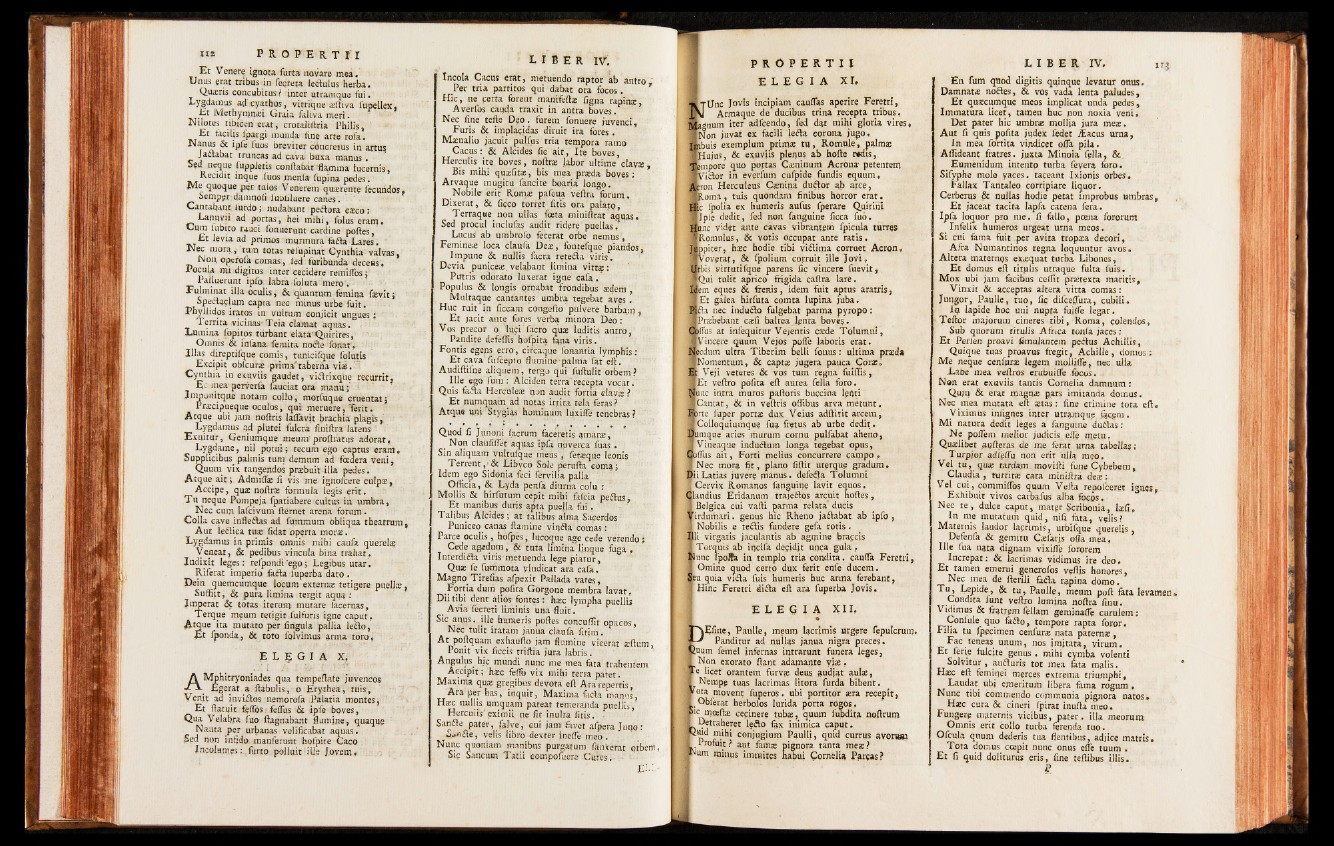 112 PROPERTII
Et Venere ignota furta novare mea.
Unus erat tribus in ſecreta lectulus herba.
Quæris concubitus? inter utramque fui.
Lygdamus ad cyathos, vitrique æſtiva ſupellex,
Et Methymnæi Graia ſaliva meri.
Nilotes tibicen erat, crotaliſtria Philis,
Et facilis ſpargi munda ſine arte roſa.
Nanus & ipſe ſuos breviter concretus in artus
Jactabat truncas ad cava buxa manus.
Sed neque ſuppletis conſtabat flamma lucernis,
Recidit inque ſuos menſa ſupina pedes.
Me quoque per talos Venerem quærente ſecundos,
Semper damnoſi ſubſiluere canes.
Cantabant ſurdo; nudabant pectora cæco:
Lanuvii ad portas, hei mihi, ſolus eram.
Cum ſubito rauci ſonuerunt cardine poſtes,
Et levia ad primos murmura facta Lares.
Nec mora, tum totas reſupinat Cynthia valvas,
Non operoſa comas, ſed furibunda decens.
Pocula mi digitos inter cecidere remiſſos;
Palluerunt ipſo labra ſoluta mero.
Fulminat illa oculis, & quantum femina ſævit;
Spectaclum capta nec minus urbe fuit.
Phyllidos iratos in vultum conjicit ungues:
Territa vicinas Teia clamat aquas.
Lumina ſopitos turbant elata Quirites,
Omnis & inſana ſemita nocte ſonat.
Illas direptiſque comis, tuniciſque ſolutis
Excipit obſcuræ prima taberna viæ.
Cynthia in exuviis gaudet, victrixque recurrit,
Et mea perverſa ſauciat ora manu;
Imponitque notam collo, morſuque cruentat;
Præcipueque oculos, qui meruere, ferit.
Atque ubi jam noſtris laſſavit brachia plagis,
Lygdamus ad plutei fulcra ſiniſtra latens
Exuitur, Geniumque meum proſtratus adorat.
Lygdame, nil potui; tecum ego captus eram.
Supplicibus palmis tum demum ad fœdera veni,
Quum vix tangendos præbuit illa pedes.
Atque ait; Admiſſæ ſi vis me ignoſcere culpæ,
Accipe, quæ noſtræ formula legis erit.
Tu neque Pompeja ſpatiabere cultus in umbra,
Nec cum laſcivum ſternet arena forum.
Colla cave inflectas ad ſummum obliqua theatrum,
Aut lectica tuæ ſidat operta moræ.
Lygdamus in primis omnis mihi cauſa querelæ
Veneat, & pedibus vincula bina trahat.
Indixit leges: reſpondi ego; Legibus utar.
Riſerat imperio facta ſuperba dato.
Dein quemcumque locum externæ tetigere puellæ,
Suffiit, & pura limina tergit aqua:
Imperat & totas iterum mutare lacernas,
Terque meum tetigit ſulfuris igne caput.
Atque ita mutato per ſingula pallia lecto,
Et ſponda, & toto ſolvimus arma toro.
ELEGIA X.
AMphitryoniades qua tempeſtate juvencos
Egerat a ſtabulis, o Erythea, tuis,
Venit ad invictos nemoroſa Palatia montes,
Et ſtatuit feſſos feſſus & ipſe boves,
Qua Velabra ſuo ſtagnabant flumine, quaque
Nauta per urbanas velificabat aquas.
Sed non infido manſerunt hoſpite Caco
Incolumes: furto polluit ille Jovem.
LIBER IV.
Incola Cacus erat, metuendo raptor ab antro,
Per tria partitos qui dabat ora focos.
Hic, ne certa forent manifeſtæ ſigna rapinæ,
Averſos cauda traxit in antra boves.
Nec ſine teſte Deo. furem ſonuere juvenci,
Furis & implacidas diruit ira fores.
Mænalio jacuit pulſus tria tempora ramo
Cacus: & Alcides ſic ait, Ite boves,
Herculis ite boves, noſtræ labor ultime clavæ,
Bis mihi quæſitæ, bis mea præda boves:
Arvaque mugitu ſancite boaria longo.
Nobile erit Romæ paſcua veſtra forum.
Dixerat, & ſicco torret ſitis ora palato,
Terraque non ullas fœta miniſtrat aquas.
Sed procul incluſas audit ridere puellas.
Lucus ab umbroſo fecerat orbe nemus,
Femineæ loca clauſa Deæ, fonteſque piandos,
Impune & nullis ſacra retecta viris.
Devia puniceæ velabant limina vittæ:
Putris odorato luxerat igne caſa.
Populus & longis ornabat frondibus ædem,
Multaque cantantes umbra tegebat aves.
Huc ruit in ſiccam congeſto pulvere barbam,
Et jacit ante fores verba minora Deo:
Vos precor o luci ſacro quæ luditis antro,
Pandite defeſſis hoſpita fana viris.
Fontis egens erro, circaque ſonantia lymphis:
Et cava ſuſcepto flumine palma ſat eſt.
Audiſtiſne aliquem, tergo qui ſuſtulit orbem?
Ille ego ſum: Alciden terra recepta vocat.
Quis facta Herculeæ non audit fortia clavæ?
Et numquam ad notas irrita tela feras?
Atque uni Stygias hominum luxiſſe tenebras?
. . . . . . . . . . .
Quod ſi Junoni ſacrum faceretis amaræ,
Non clauſiſſet aquas ipſa noverca ſuas.
Sin aliquam vultuſque meus, ſetæque leonis
Terrent, & Libyco Sole peruſta coma;
Idem ego Sidonia feci ſervilia palla
Officia, & Lyda penſa diurna colu:
Mollis & hirſutum cepit mihi faſcia pectus,
Et manibus duris apta puella fui.
Talibus Alcides: at talibus alma Sacerdos
Puniceo canas ſtamine vincta comas:
Parce oculis, hoſpes, lucoque age cede verendo:
Cede agedum, & tuta limina linque fuga.
Interdicta viris metuenda lege piatur,
Quæ ſe ſummota vindicat ara caſa.
Magno Tireſias aſpexit Pallada vates,
Fortia dum poſita Gorgone membra lavat.
Dii tibi dent alios fontes: hæc lympha puellis
Avia ſecreti liminis una fluit.
Sic anus. ille humeris poſtes concuſſit opacos,
Nec tulit iratam janua clauſa ſitim.
At poſtquam exhauſto jam flumine vicerat æſtum,
Ponit vix ſiccis triſtia jura labris.
Angulus hic mundi nunc me mea fata trahentem
Accipit: hæc feſſo vix mihi terra patet.
Maxima quæ gregibus devota eſt Ara repertis,
Ara per has, inquit, Maxima facta manus,
Hæc nullis umquam pateat temeranda puellis,
Herculis eximii ne ſit inulta ſitis.
Sancte pater, ſalve, cui jam favet aſpera Juno:
Sancte, velis libro dexter ineſſe meo.
Nunc quoniam manibus purgatum ſanxerat orbem,
Sic Sancum Tatii compoſuere Cures.
PROPERTII
ELEGIA XI.
NUnc Jovis incipiam cauſſas aperire Feretri,
Armaque de ducibus trina recepta tribus.
Magnum iter adſcendo, ſed dat mihi gloria vires,
Non juvat ex facili lecta corona jugo.
Imbuis exemplum primæ tu, Romule, palmæ
Hujus, & exuviis plenus ab hoſte redis,
Tempore quo portas Cæninum Acrona petentem
Victor in everſum cuſpide fundis equum.
Acron Herculeus Cænina ductor ab arce,
Roma, tuis quondam finibus horror erat.
Hic ſpolia ex humeris auſus ſperare Quirini
Ipſe dedit, ſed non ſanguine ſicca ſuo.
Hunc videt ante cavas vibrantem ſpicula turres
Romulus, & votis occupat ante ratis.
Juppiter, hæc hodie tibi victima corruet Acron.
Voverat, & ſpolium corruit ille Jovi.
Urbis virtutiſque parens ſic vincere ſuevit,
Qui tulit aprico frigida caſtra lare.
Idem eques & frenis, idem fuit aptus aratris,
Et galea hirſuta comta lupina juba.
Picta nec inducto fulgebat parma pyropo:
Præbebant cæſi baltea lenta boves.
Coſſus at inſequitur Vejentis cæde Tolumni,
Vincere quum Vejos poſſe laboris erat.
Necdum ultra Tiberim belli ſonus: ultima præda
Nomentum, & captæ jugera pauca Coræ.
Et Veji veteres & vos tum regna fuiſtis,
Et veſtro poſita eſt aurea ſella foro.
Nunc intra muros paſtoris buccina lenti
Cantat, & in veſtris oſſibus arva metunt.
Forte ſuper portæ dux Veius adſtitit arcem,
Colloquiumque ſua fretus ab urbe dedit.
Dumque aries murum cornu pulſabat aheno,
Vineaque inductum longa tegebat opus,
Coſſus ait, Forti melius concurrere campo.
Nec mora fit, plano ſiſtit uterque gradum.
Dii Latias juvere manus. deſecta Tolumni
Cervix Romanos ſanguine lavit equos.
Claudius Eridanum trajectos arcuit hoſtes,
Belgica cui vaſti parma relata ducis
Virdumari. genus hic Rheno jactabat ab ipſo,
Nobilis e tectis fundere geſa rotis.
Illi virgatis jaculantis ab agmine braccis
Torquis ab inciſa decidit unca gula.
Nunc ſpolia in templo tria condita. cauſſa Feretri,
Omine quod certo dux ferit enſe ducem.
Seu quia victa ſuis humeris huc arma ferebant,
Hinc Feretri dicta eſt ara ſuperba Jovis.
ELEGIA XII.
DEſine, Paulle, meum lacrimis urgere ſepulcrum.
Panditur ad nullas janua nigra preces.
Quum ſemel infernas intrarunt funera leges,
Non exorato ſtant adamante viæ.
Te licet orantem furvæ deus audjat aulæ,
Nempe tuas lacrimas litora ſurda bibent.
Vota movent ſuperos. ubi portitor æra recepit,
Obſerat herboſos lurida porta rogos.
Sic mœſtæ cecinere tubæ, quum ſubdita noſtrum
Detraheret lecto fax inimica caput.
Quid mihi conjugium Paulli, quid currus avorum
Profuit? aut famæ pignora tanta meæ?
Num minus immites habui Cornelia Parcas?
LIBER IV. 113
En ſum quod digitis quinque levatur onus.
Damnatæ noctes, & vos vada lenta paludes,
Et quæcumque meos implicat unda pedes,
Immatura licet, tamen huc non noxia veni.
Det pater hic umbræ mollja jura meæ.
Aut ſi quis poſita judex ſedet Æacus urna,
In mea ſortita vindicet oſſa pila.
Aſſideant fratres. juxta Minoia ſella, &
Eumenidum intento turba ſevera foro.
Siſyphe mole vaces. taceant Ixionis orbes.
Fallax Tantaleo corripiare liquor.
Cerberus & nullas hodie petat improbus umbras,
Et jaceat tacita lapſa catena ſera.
Ipſa loquor pro me. ſi fallo, pœna ſororum
Infelix humeros urgeat urna meos.
Si cui fama fuit per avita tropæa decori,
Afra Numantinos regna loquuntur avos.
Altera maternos exæquat turba Libones,
Et domus eſt titulis utraque fulta ſuis.
Mox ubi jam facibus ceſſit prætexta maritis,
Vinxit & acceptas altera vitta comas:
Jungor, Paulle, tuo, ſic diſceſſura, cubili.
In lapide hoc uni nupta fuiſſe legar.
Teſtor majorum cineres tibi, Roma, colendos,
Sub quorum titulis Africa tonſa jaces:
Et Perſen proavi ſimulantem pectus Achillis,
Quique tuas proavus fregit, Achille, domos:
Me neque cenſuræ legem molliſſe, nec ulla
Labe mea veſtros erubuiſſe focos.
Non erat exuviis tantis Cornelia damnum:
Quin & erat magnæ pars imitanda domus.
Nec mea mutata eſt ætas: ſine crimine tota eſt.
Viximus inſignes inter utramque facem.
Mi natura dedit leges a ſanguine ductas:
Ne poſſem melior judicis eſſe metu.
Quælibet auſteras de me ferat urna tabellas:
Turpior adſeſſu non erit ulla meo.
Vel tu, quæ tardam moviſti fune Cybebem,
Claudia, turritæ cara miniſtra deæ:
Vel cui, commiſſos quum Veſta repoſceret ignes,
Exhibuit vivos carbaſus alba focos.
Nec te, dulce caput, mater Scribonia, læſi.
In me mutatum quid, niſi fata, velis?
Maternis laudor lacrimis, urbiſque querelis,
Defenſa & gemitu Cæſaris oſſa mea.
Ille ſua nata dignam vixiſſe ſororem
Increpat: & lacrimas vidimus ire deo.
Et tamen emerui generoſos veſtis honores,
Nec mea de ſterili facta rapina domo.
Tu, Lepide, & tu, Paulle, meum poſt fata levamen.
Condita ſunt veſtro lumina noſtra ſinu.
Vidimus & fratrem ſellam geminaſſe curulem:
Conſule quo facto, tempore rapta ſoror.
Filia tu ſpecimen cenſuræ nata paternæ,
Fac teneas unum, nos imitata, virum.
Et ſerie fulcite genus. mihi cymba volenti
Solvitur, aucturis tot mea fata malis.
Hæc eſt feminei merces extrema triumphi,
Laudat ubi emeritum libera fama rogum.
Nunc tibi commendo communia pignora natos.
Hæc cura & cineri ſpirat inuſta meo.
Fungere maternis vicibus, pater. illa meorum
Omnis erit collo turba ferenda tuo.
Oſcula quum dederis tua flentibus, adjice matris.
Tota domus cœpit nunc onus eſſe tuum.
Et ſi quid doliturus eris, ſine teſtibus illis.
P